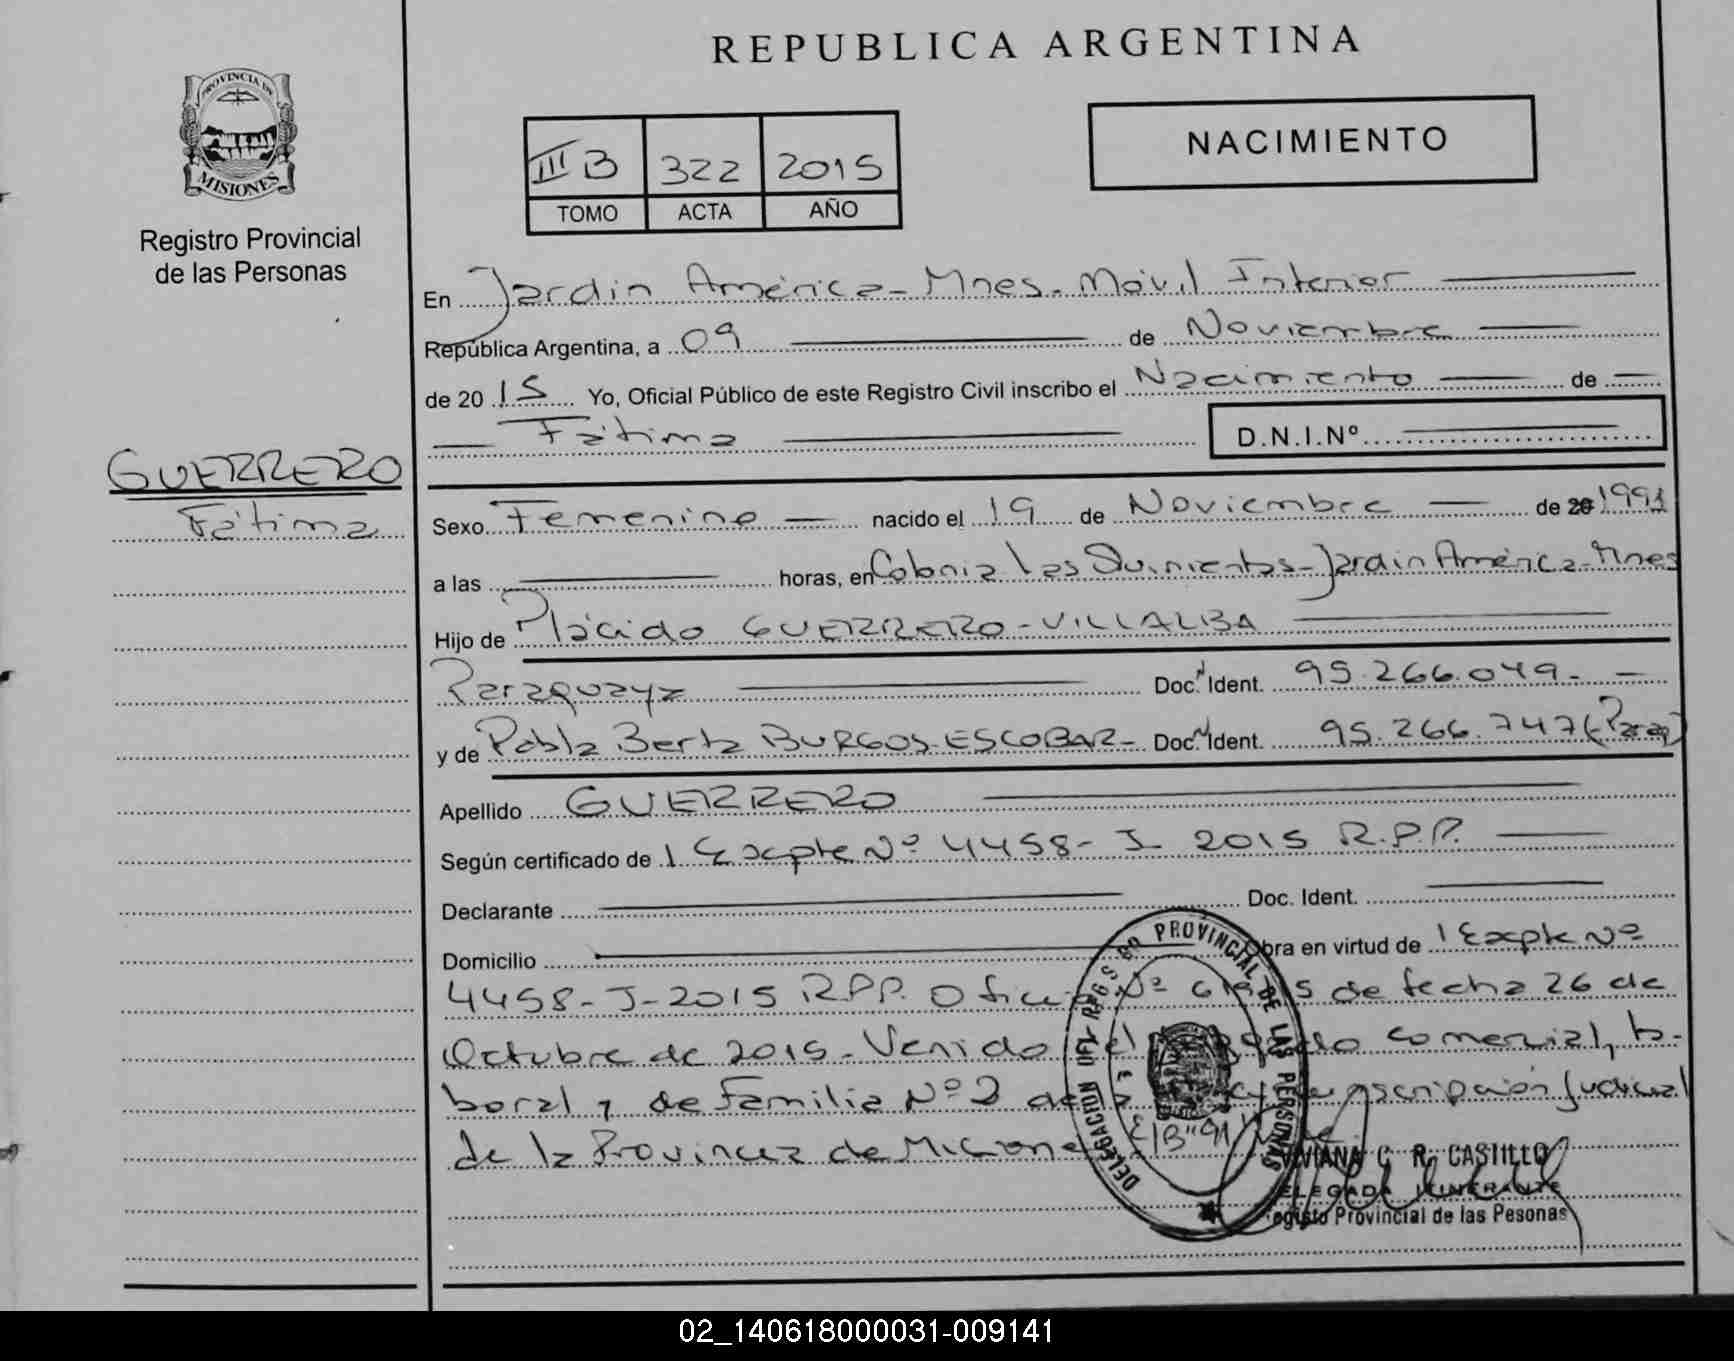 REPUBLICA ARGENTINA
PROVINCIA DE
MISIONES
Registro Provincial
de las Personas
NACIMIENTO
III B 322 2015
TOMO ACTA AÑO
En Jardín América - Mnes. Móvil Interior
República Argentina, a 09 de Noviembre
de 2015 Yo, Oficial Público de este Registro Civil inscribo el Nacimiento de
Fátima D.N.I.Nº
GUERRERO
Fátima
Sexo Femenino nacido el 19 de Noviembre de 20 1991
a las horas, en Colonia Las Quinientas - Jardín América - Mnes
Hijo de Plácido GUERRERO - VILLALBA
Paraguaya Doc. Ident. 95.266.049.
y de Pabla Berta BURGOS - ESCOBAR - Doc. Ident. 95.266.747 (Parag)
Apellido GUERRERO
Según certificado de 1 Expte Nº 4458 - J - 2015 R.P.P.
Declarante Doc. Ident.
Domicilio Obra en virtud de 1 Expte Nº
4458 - J - 2015 R.P.P. Oficio Nº de fecha 26 de
Octubre de 2015 - Venido del comercial, la-
boral y de Familia Nº 2 de Judicial
de la Provincia de Misiones
DELEGACION PROVINCIAL DE LAS PERSONAS
VIVIANA C. R. CASTILLO
DELEGADA ITINERANTE
Registo Provincial de las Pesonas
02_140618000031-009141